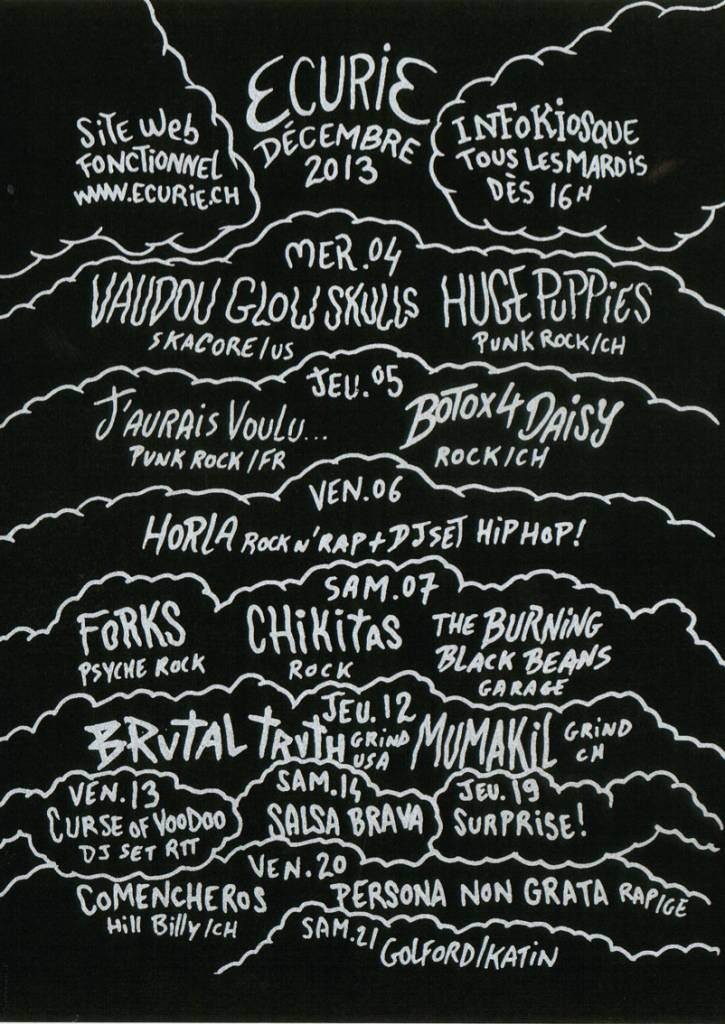 ECURIE
DÉCEMBRE
2013
SITE WEB
FONCTIONNEL
WWW.ECURIE.CH
INFOKIOSQUE
TOUS LES MARDIS
DÈS 16H
MER.04
VAUDOU GLOW SKULLS
SKACORE/US
HUGE PUPPIES
PUNK ROCK/CH
JEU.05
J'AURAIS VOULU...
PUNK ROCK/FR
BOTOX4DAISY
ROCK/CH
VEN.06
HORLA ROCK N'RAP + DJ SET HIPHOP!
SAM.07
FORKS
PSYCHE ROCK
CHIKITAS
ROCK
THE BURNING
BLACK BEANS
GARAGE
JEU.12
BRUTAL TRUTH GRIND
USA
MUMAKIL GRIND
CH
VEN.13
CURSE OF VOODOO
DJ SET RTT
SAM.14
SALSA BRAVA
JEU.19
SURPRISE!
VEN.20
COMENCHEROS
Hill Billy/CH
PERSONA NON GRATA RAP/GE
SAM.21
GOLFORD/KATIN